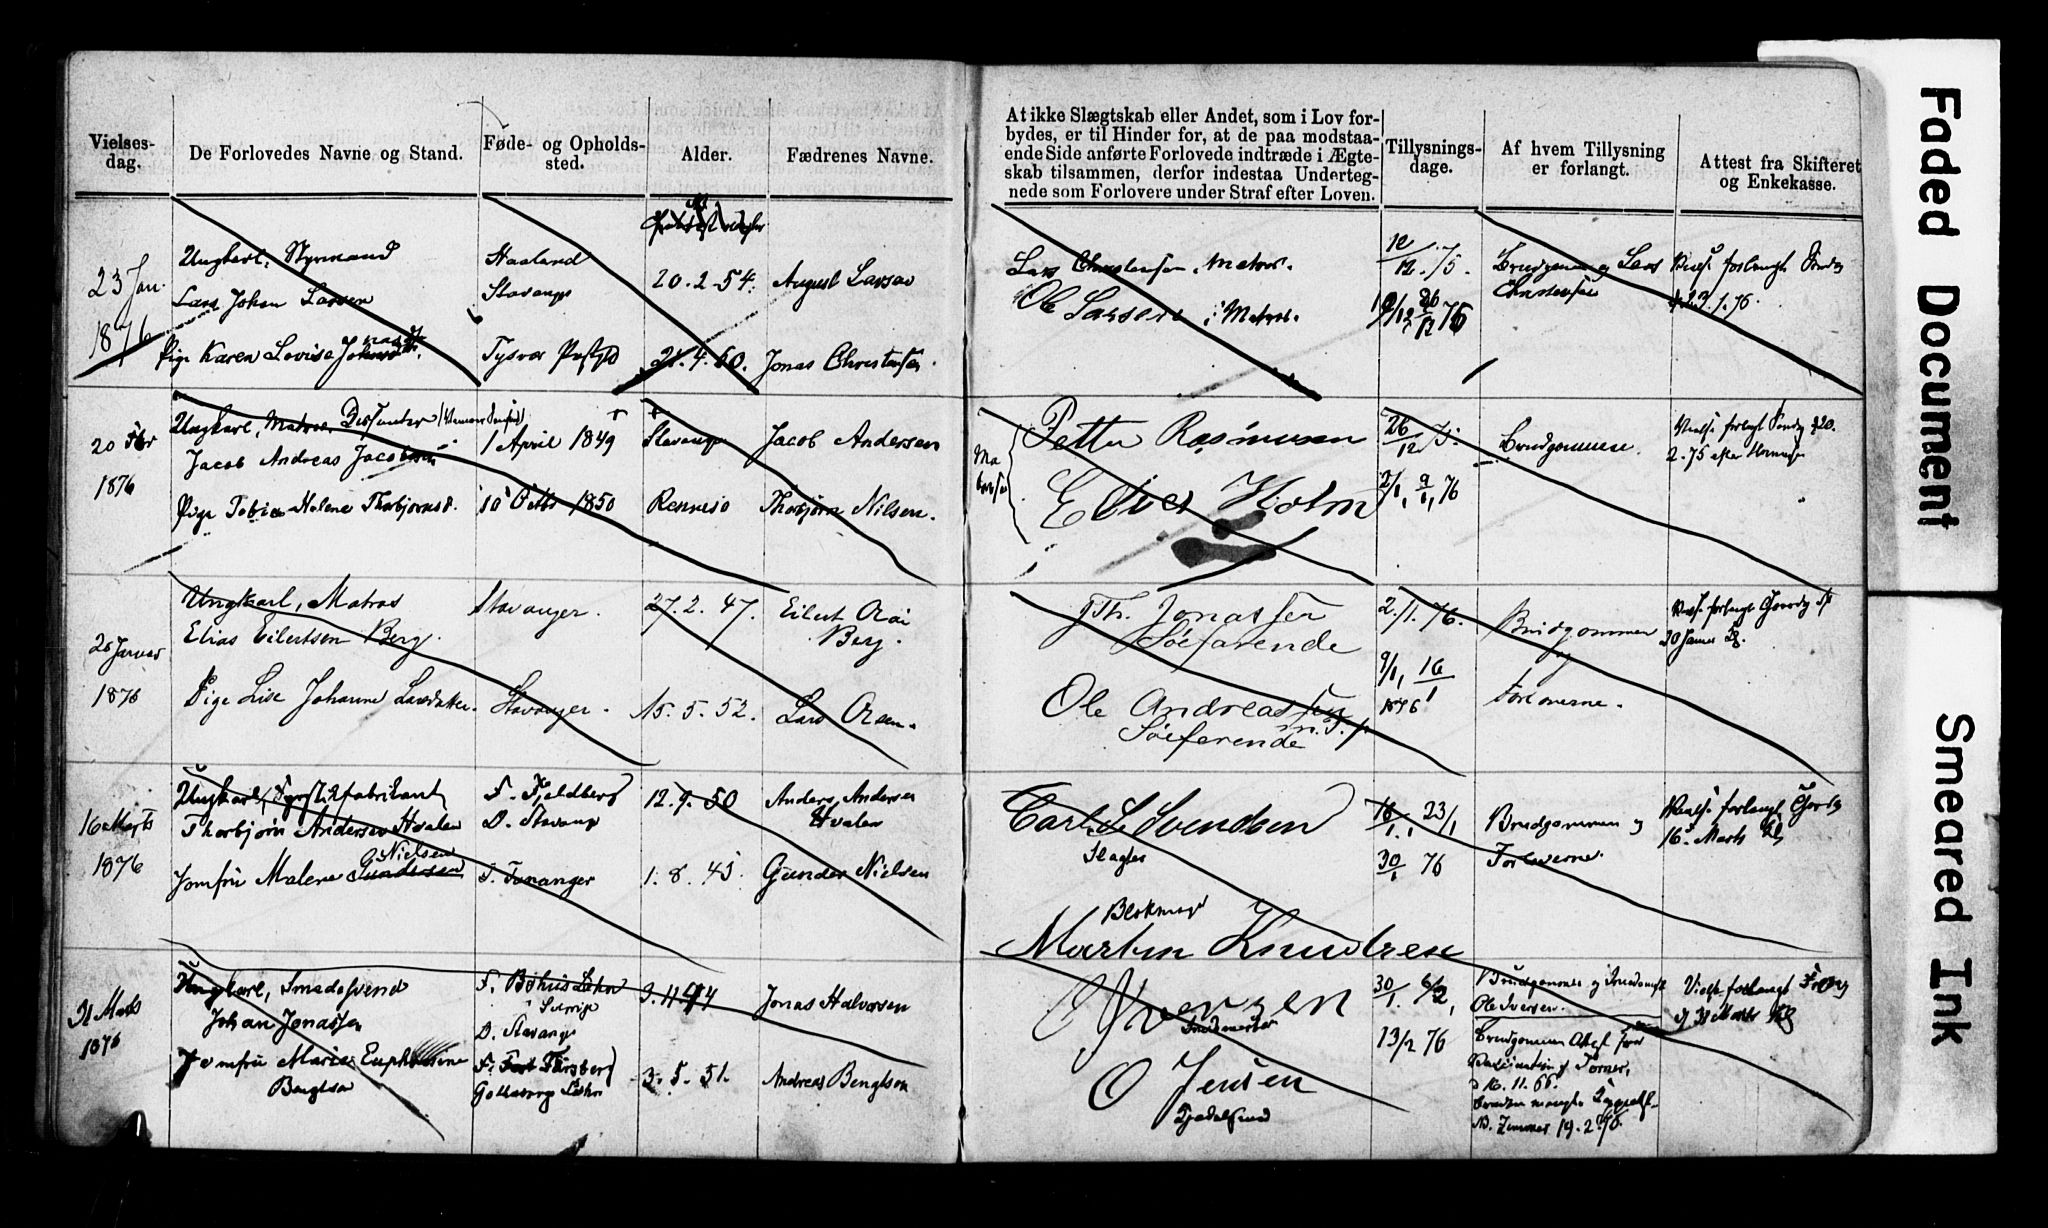 Vielses-
dag.
De Forlovedes Navne og Stand.
Føde- og Opholds-
sted.
Alder.
Fædrenes Navne.
At ikke Slægtskab eller Andet, som i Lov for-
bydes, er til Hinder for, at de paa modstaa-
ende Side anførte Forlovede indtræde i Ægte-
skab tilsammen, derfor indestaa Underteg-
nede som Forlovere under Straf efter Loven.
Tillysnings-
dage.
Af hvem Tillysning
er forlangt.
Attest fra Skifteret
og Enkekasse.
23 Jan.
1876
Ungkarl, Styrmand
Lars Johan Larsen
Pige Karen Lovise
Haaland
Stavanger
Tysvær
20.2.54.
21.4.50.
August Larsen
Jonas Christensen.
Lars Christensen, Matros.
Ole Larsen, Matros.
12/12.75.
19/12 26/12 75
Brudgommen og Lars
Christensen
Vielse forlangt
23.1.76.
20 Febr
1876
Ungkarl, Matros Dissenter
Jacob Andreas Jacobsen
Pige Tobia Helene Thorbjørnsd.
1 April 1849
10 Octbr 1850
Stavanger
Rennesø
Jacob Andersen
Thorbjørn Nilsen.
Petter Rasmusen
Elias Holm
26/12 75.
2/1, 9/1, 76
Brudgommene.
Vielse forlangt Søndag d 20.
2.75 efter
20 Januar
1876
Ungkarl, Matros
Elias Eilertsen Berg.
Pige Lise Johanne
Stavanger.
Stavanger.
27.2.47.
15.5.52.
Eilert
Berg.
Lars Olsen.
Th. Jonassen
Søefarende
Ole Andreassen
m. P. p.
Søefarende
2/1.76.
9/1, 16/1
1876
Brudgommen
og
Forloverne.
Vielse forlangt
20 Januar
16 Marts
1876
Ungkarl, Fyrstikfabrikant
Thorbjørn Andersen Hvalen
Nielsen
Jomfru Malene Gundersen
F. Fjeldberg
D. Stavanger
F. Tananger
12.9.50
1.8.45.
Anders Andersen
Hvalen
Gunder Nielsen
Carl L. Svendsen
Slagter
Blokmager
Martin Knudsen
16/1, 23/1
30/1 76
Brudgommen og
Forloverne.
Vielse forlangt
16. Marts
31 Marts
1876
Ungkarl, Smedesvend
Johan Jonassen
Jomfru Marie
Bengtson
F. Bohus Lehn
i Sverige
D. Stavanger
Gotteborgs Lehn
3.11.44
3.5.51.
Jonas Halvorsen
Andreas Bengtson
O Iversen
O Jensen
30/1. 6/2,
13/2 76
Brudgommen og
Ole Iversen.
Brudgommen Attest for
Vaccination
d 16.11.66.
19.2.76.
Vielse forlangt Fredag
d 31 Marts
Faded Document
Smeared Ink